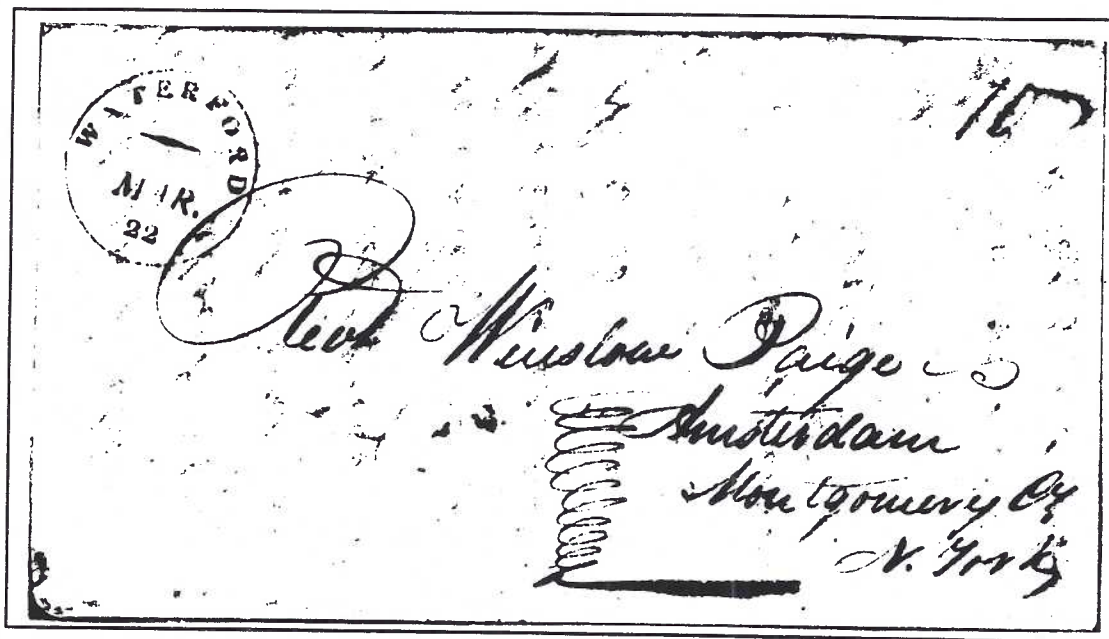 WATERFORD
MAR.
22
10
Revd Winslow Paige
Amsterdam
Montgomery Cy
N. York